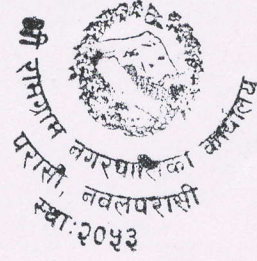 श्री रामग्राम नगरपालिका कार्यालय
परासी, नवलपरासी
स्था: २०५३